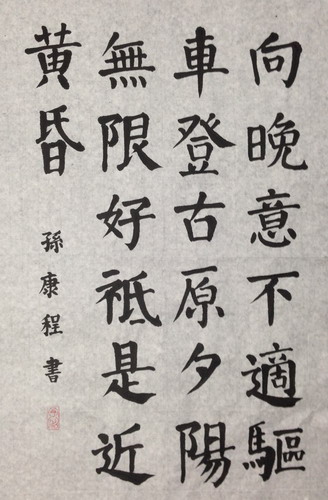 向晚意不適驅
車登古原夕陽
無限好祗是近
黃昏
孫康程書